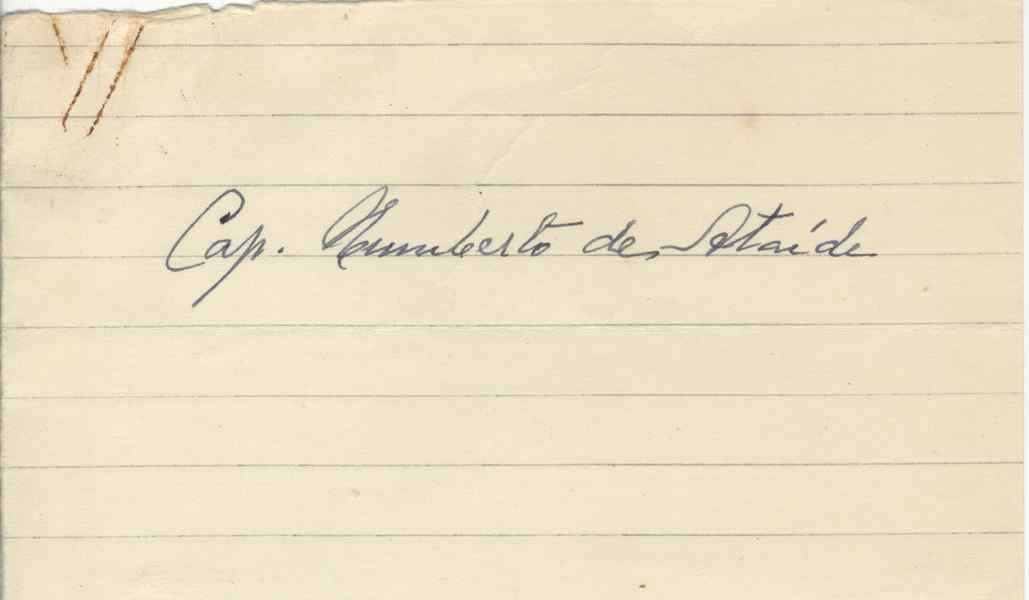 Cap. Humberto de Ataíde